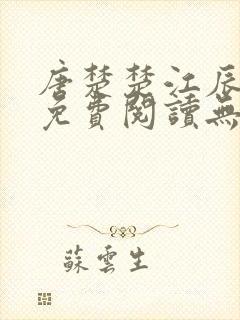 唐楚楚江辰
免費閱讀無
蘇雲生